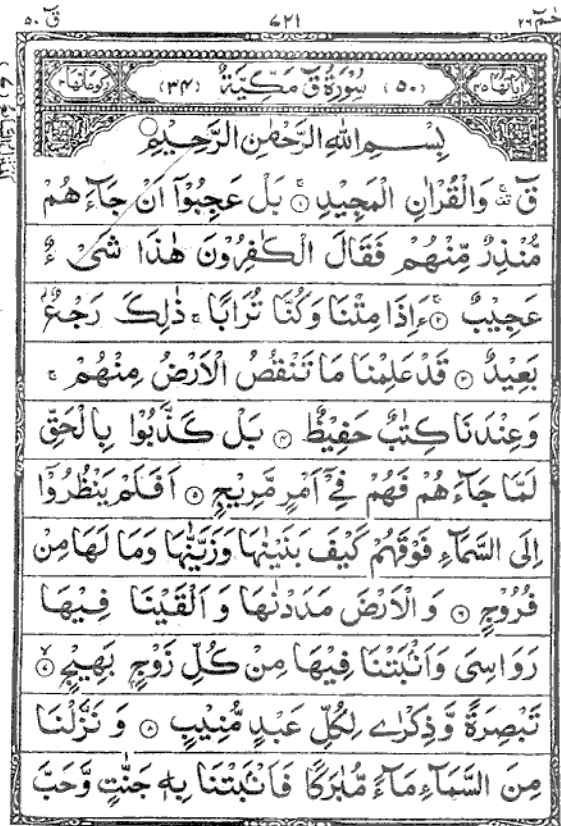 حٰمٓ ٢٦ ٧٢١ قٓ ٥٠
اٰيَاتُهَا ٤٥ (٥٠) سُوْرَةُ قٓ مَكِّيَّةٌ (٣٤) رُكُوْعَاتُهَا ٣
بِسْــــمِ اللهِ الرَّحْمٰنِ الرَّحِيْمِ
قٓ ۚ وَالْقُرْاٰنِ الْمَجِيْدِ ۚ ﴿١﴾ بَلْ عَجِبُوْۤا اَنْ جَآءَهُمْ
مُّنْذِرٌ مِّنْهُمْ فَقَالَ الْكٰفِرُوْنَ هٰذَا شَىْءٌ
عَجِيْبٌ ۚ ﴿٢﴾ ءَاِذَا مِتْنَا وَكُنَّا تُرَابًا ۚ ذٰلِكَ رَجْعٌۢ
بَعِيْدٌ ﴿٣﴾ قَدْ عَلِمْنَا مَا تَنْقُصُ الْاَرْضُ مِنْهُمْ ۚ
وَعِنْدَنَا كِتٰبٌ حَفِيْظٌ ﴿٤﴾ بَلْ كَذَّبُوْا بِالْحَقِّ
لَمَّا جَآءَهُمْ فَهُمْ فِىْۤ اَمْرٍ مَّرِيْجٍ ﴿٥﴾ اَفَلَمْ يَنْظُرُوْۤا
اِلَى السَّمَآءِ فَوْقَهُمْ كَيْفَ بَنَيْنٰهَا وَزَيَّنّٰهَا وَمَا لَهَا مِنْ
فُرُوْجٍ ﴿٦﴾ وَالْاَرْضَ مَدَدْنٰهَا وَاَلْقَيْنَا فِيْهَا
رَوَاسِىَ وَاَنْۢبَتْنَا فِيْهَا مِنْ كُلِّ زَوْجٍۭ بَهِيْجٍ ۙ ﴿٧﴾
تَبْصِرَةً وَّذِكْرٰى لِكُلِّ عَبْدٍ مُّنِيْبٍ ﴿٨﴾ وَنَزَّلْنَا
مِنَ السَّمَآءِ مَآءً مُّبٰرَكًا فَاَنْۢبَتْنَا بِهٖ جَنّٰتٍ وَّحَبَّ